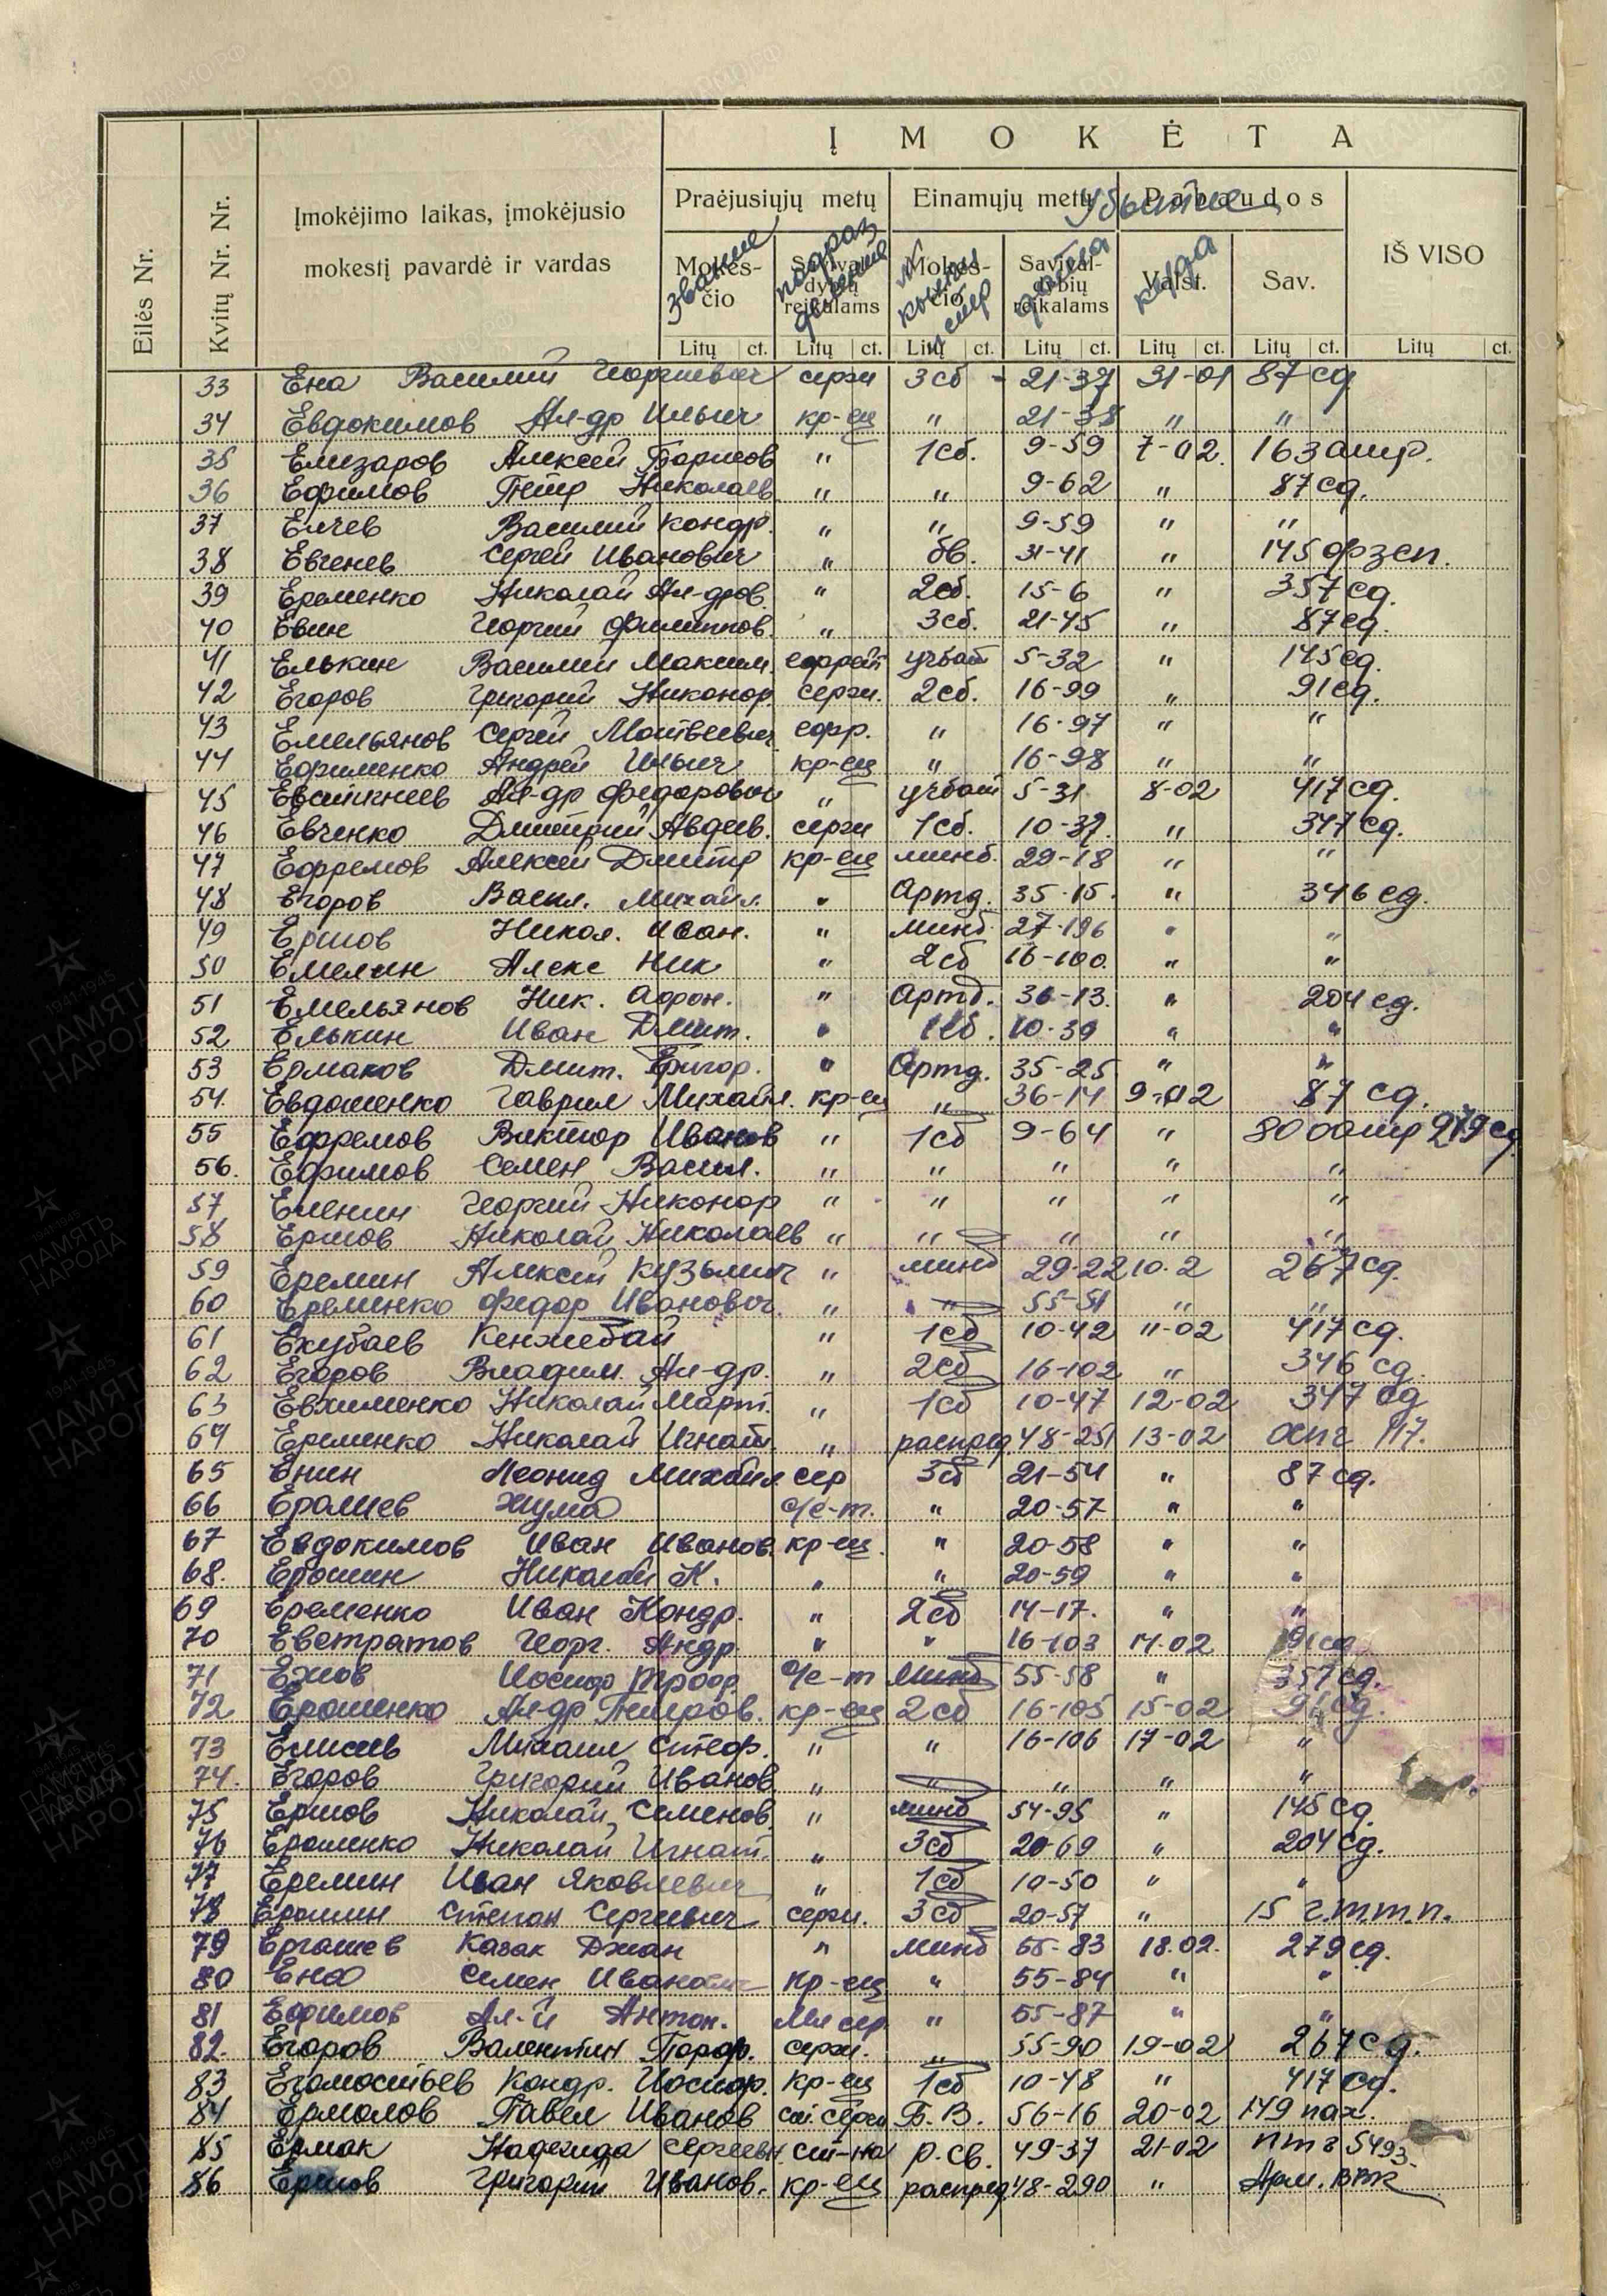 Į M O K Ė T A
Praėjusiųjų metų Einamųjų metų Pabaudos
Убытие
Eilės Nr.
Kvitų Nr. Nr.
Įmokėjimo laikas, įmokėjusio
mokestį pavardė ir vardas
Mokes-
čio
звание
Savival-
dybių
reikalams
подраз
деление
Mokes-
čio
№
книги
и стр
Savival-
dybių
reikalams
дата
Valst.
куда
Sav.
IŠ VISO
Litų ct. Litų ct. Litų ct. Litų ct. Litų ct. Litų ct. Litų ct.
33 Ена Василий Георгиевич сержи 3сб - 21-37 31-01 87 сд
34 Евдокимов Ал-др Ильич кр-ец " 21-38 " "
35 Елизаров Алексей Борисов " 1сб. 9-59 7-02 163 ашр.
36 Ефимов Петр Николаев " " 9-62 " 87 сд.
37 Елчев Василий Кондр. " " 9-59 " "
38 Евченев Сергей Иванович " бв. 31-41 " 145 фрзсп.
39 Еременко Николай Ал-дров. " 2сб. 15-6 " 357 сд.
40 Евин Георгий Филиппов. " 3сб. 21-45 " 87 сд.
41 Елькин Василий Максим. ефрейт учбат 5-32 " 145 сд.
42 Егоров Григорий Никонор. сержи. 2сб. 16-99 " 91 сд.
43 Емельянов Сергей Матвеевич ефр. " 16-97 " "
44 Ефименко Андрей Ильич кр-ец " 16-98 " "
45 Евстигнеев Ал-др Федорович " учбат 5-31 8-02 417 сд.
46 Евченко Дмитрий Авдеев. сержи 1сб. 10-37. " 347 сд.
47 Ефремов Алексей Дмитр кр-ец минб. 29-18 " "
48 Егоров Васил. Михайл. " Артд. 35-15. " 346 сд.
49 Ершов Никол. Иван. " минб. 27-196 " "
50 Емелин Алекс Ник " 2сб 16-100. " "
51 Емельянов Ник. Афон. " Артд. 36-13. " 204 сд.
52 Елькин Иван Дмит. " 1сб. 10-39 " "
53 Ермаков Дмит. Григор. " Артд. 35-25 " "
54. Евдошенко Гаврил Михайл. кр-ец " 36-14 9-02 87 сд.
55 Ефремов Виктор Иванов " 1сб 9-64 " 80 оашр 279 сд
56. Ефимов Семен Васил. " " " " "
57 Еленин Георгий Никонор " " " " "
58 Ершов Николай Николаев " " " " "
59 Еремин Алексей Кузьмич " минб 29-22 10.2 267 сд.
60 Еременко Федор Иванович. " " 55-51 " "
61 Екубаев Кенжебай " 1сб 10-42 11-02 417 сд.
62 Егоров Владим. Ал-др. " 2сб 16-102 " 346 сд.
63 Евхименко Николай Март. " 1сб 10-47 12-02 347 сд
64 Еременко Николай Игнат. " распред 48-251 13-02 117.
65 Енин Леонид Михайл. сер 3сб 21-54 " 87 сд.
66 Ералиев Жума с/с-т. " 20-57 " "
67 Евдокимов Иван Иванов. кр-ец. " 20-58 " "
68. Николай К. " " 20-59 " "
69 Еременко Иван Кондр. " 2сб 14-17. " "
70 Евстратов Георг. Андр. " " 16-103 14.02 91 сд
71 Ежов Иосиф с/с-т минб 55-58 " 357 сд.
72 Ерошенко Ал-др Петров. кр-ец 2сб 16-105 15-02 91 сд.
73 Елисеев Михаил Стеф. " " 16-106 17-02 "
74. Егоров Григорий Иванов. " " " " "
75 Ершов Николай Семенов. " минб 54-95 " 145 сд.
76 Ероменко Николай Игнат. " 3сб 20-69 " 204 сд.
77 Еремин Иван Яковлевич " 1сб 10-50 " "
78 Ерошин Степан Сергеевич сержи. 3сб 20-57 " 15 г.т.т.п.
79 Ергашев Казак Джан " минб 55-83 18.02. 279 сд.
80 Ена Семен Иванович кр-ец " 55-84 " "
81 Ефимов Ал-й Антон. Мл сер. " 55-87 " "
82. Егоров Валентин Порф. сержи. " 55-90 19-02 267 сд.
83 Егомостьев Кондр. Иосиф. кр-ец 1сб 10-48 " 417 сд.
84 Ермолов Павел Иванов ст. сержи Б.В. 56-16 20-02 149 пах.
85 Ермак Надежда Сергеевн. ст-на р.св. 49-37 21-02 ппг 5493.
86 Ершов Григорий Иванов. кр-ец распред 48-290 " Арм. ВВК
1941-1945
ПАМЯТЬ
НАРОДА